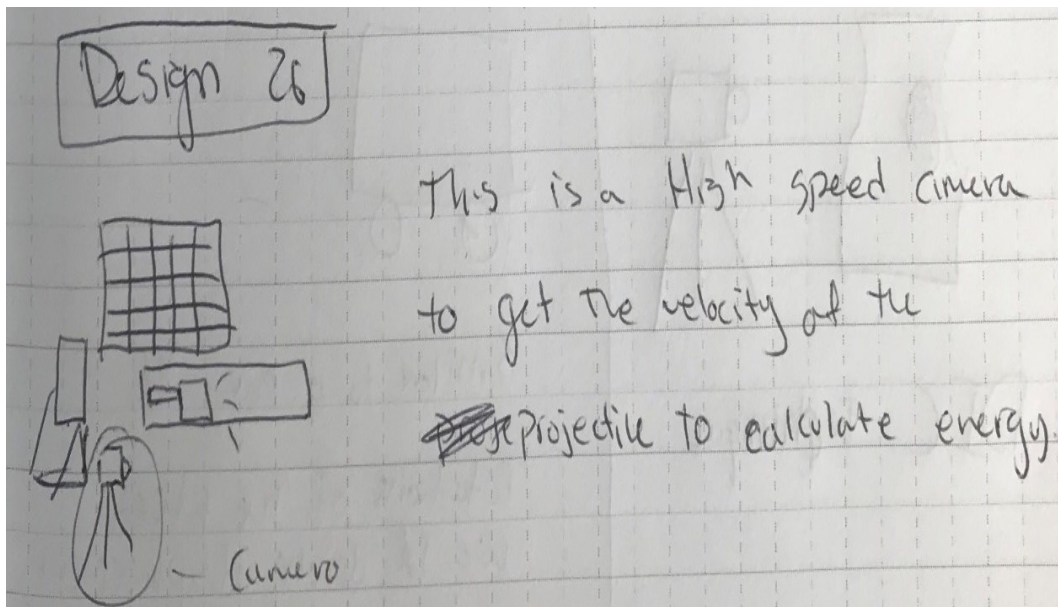 Design 26
This is a High speed camera
to get the velocity of the
projectile to calculate energy.
Camera